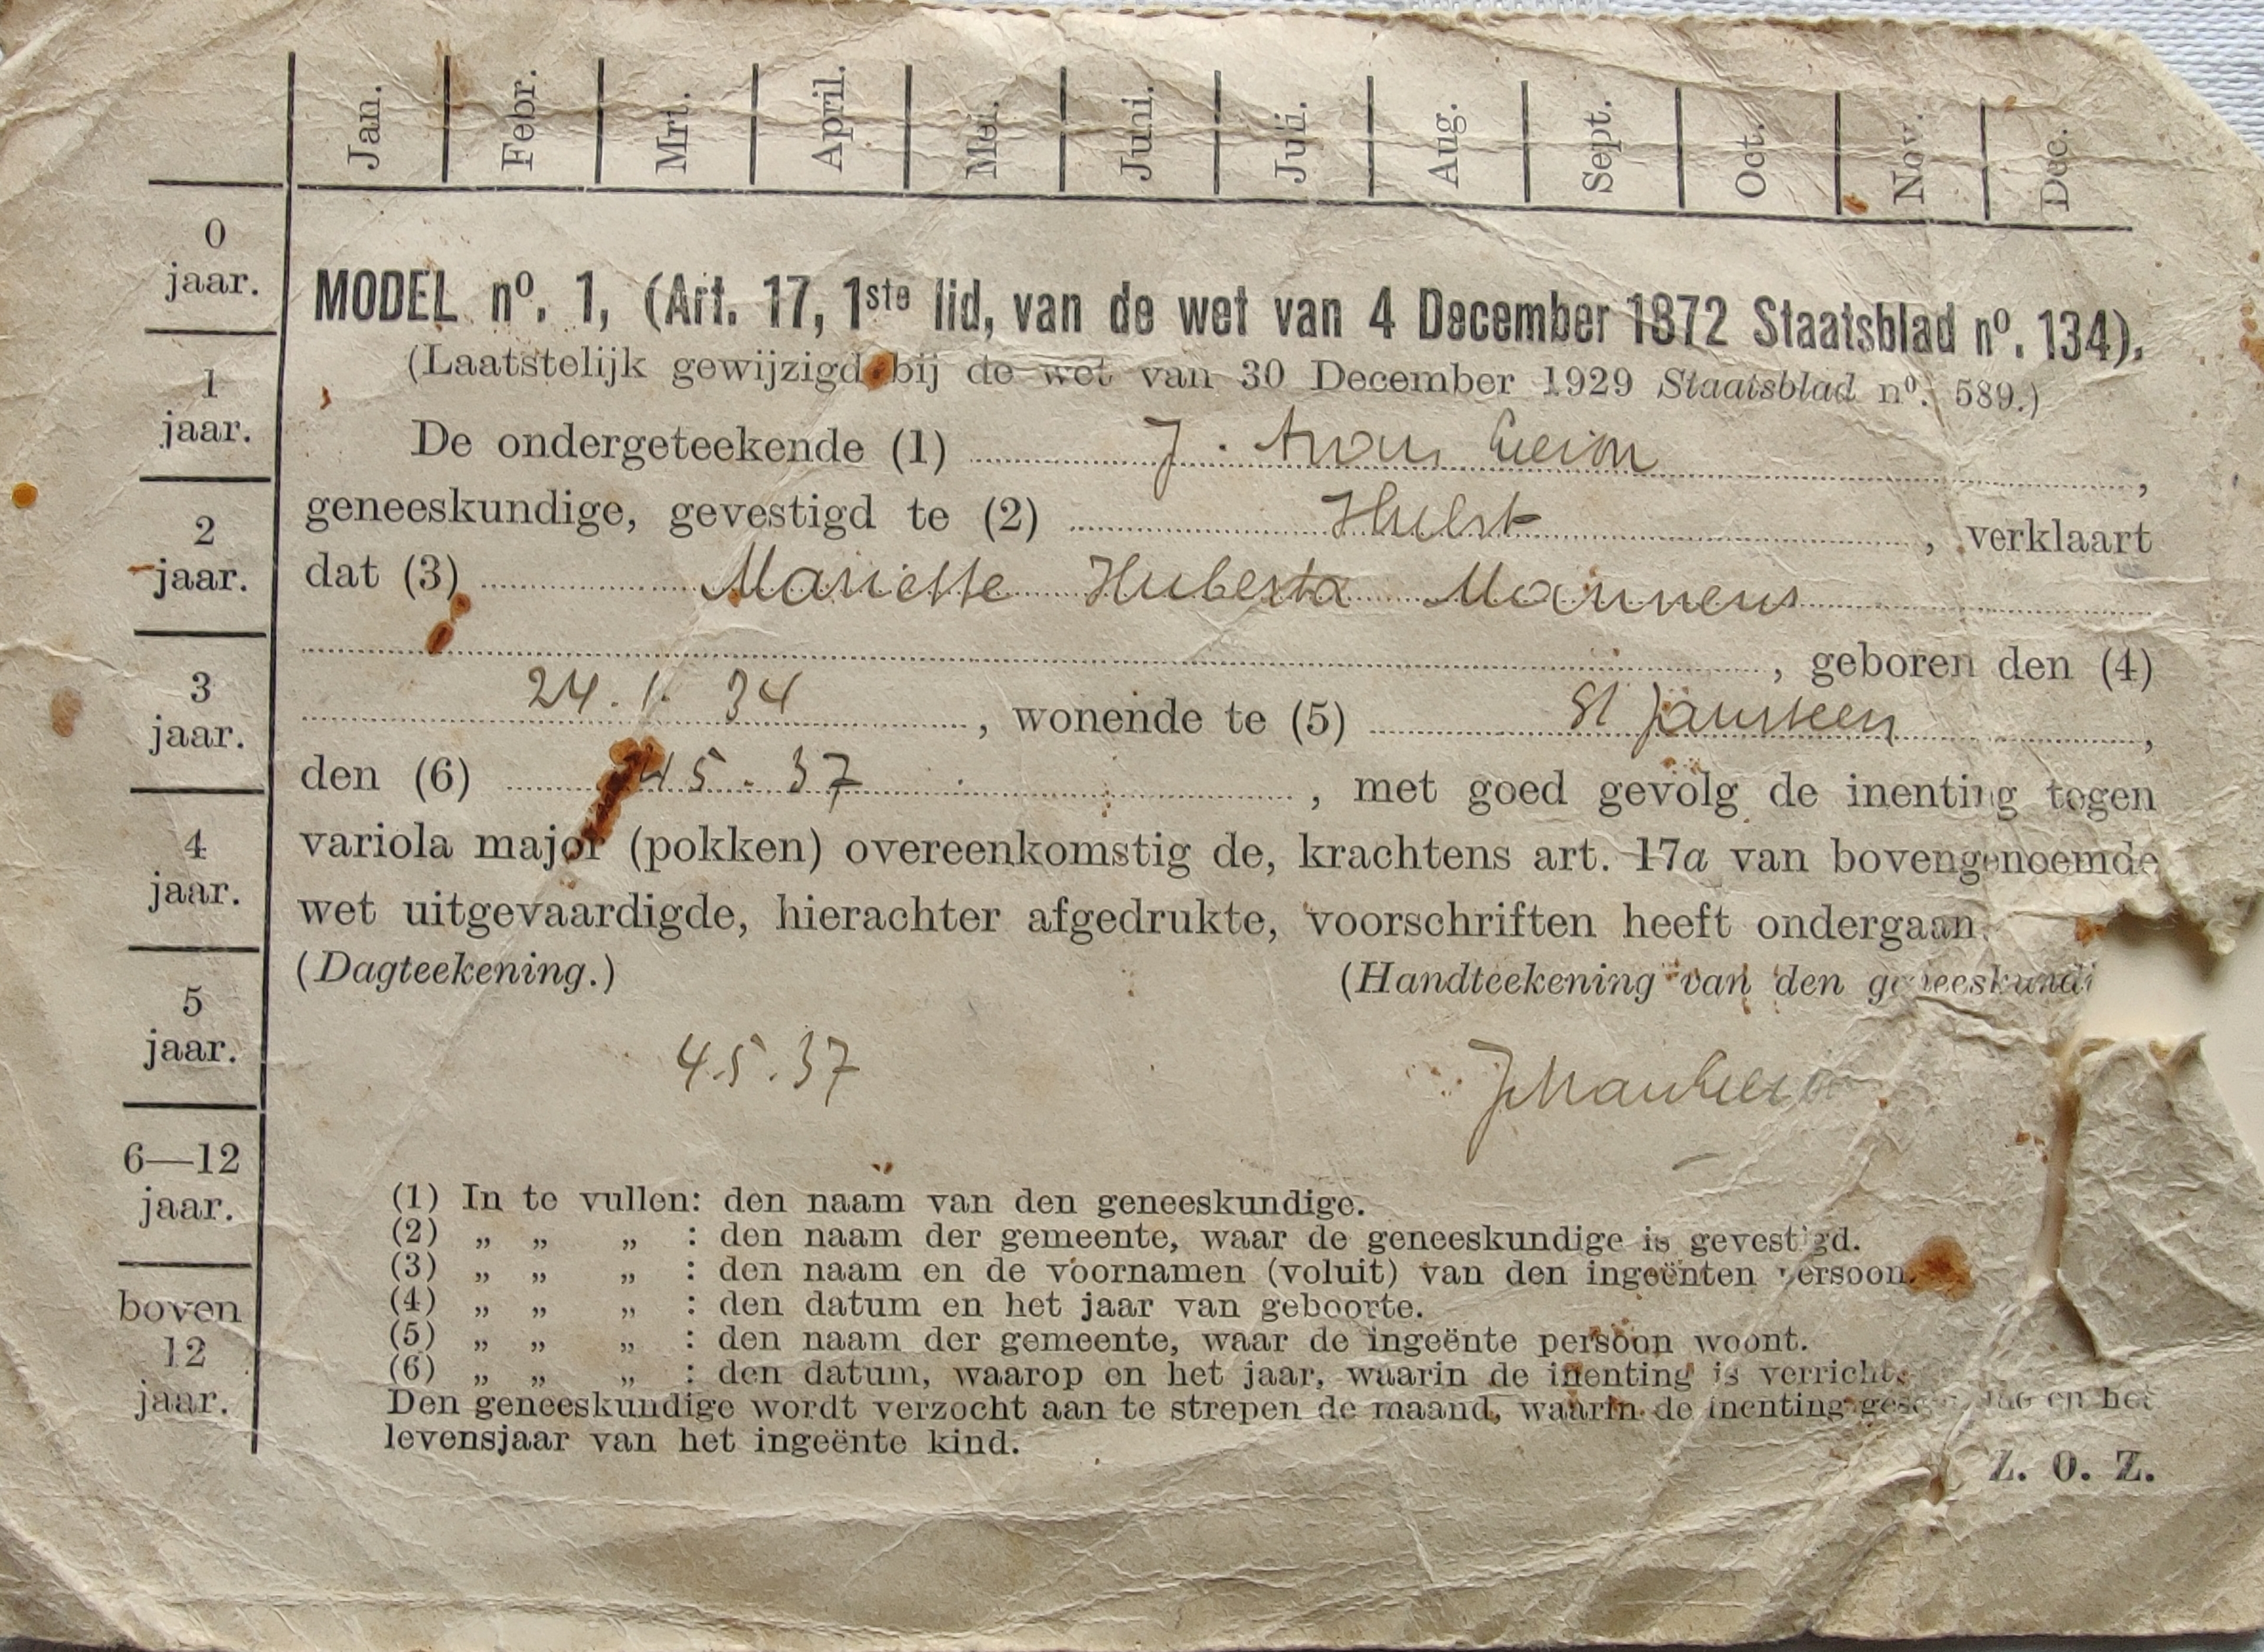 Jan. Febr. Mrt. April. Mei. Juni. Juli. Aug. Sept. Oct. Nov. Dec.
0
jaar.
1
jaar.
2
jaar.
3
jaar.
4
jaar.
5
jaar.
6—12
jaar.
boven
12
jaar.
MODEL nº. 1, (Art. 17, 1ste lid, van de wet van 4 December 1872 Staatsblad nº. 134).
(Laatstelijk gewijzigd bij de wet van 30 December 1929 Staatsblad nº. 589.)
De ondergeteekende (1) J.
geneeskundige, gevestigd te (2) Hulst, verklaart
dat (3) Mariette Huberta Mannens
, geboren den (4)
24. 1. 34, wonende te (5) St Jansteen,
den (6) 4 5. 37, met goed gevolg de inenting tegen
variola major (pokken) overeenkomstig de, krachtens art. 17a van bovengenoemde
wet uitgevaardigde, hierachter afgedrukte, voorschriften heeft ondergaan.
(Dagteekening.) (Handteekening van den geneeskundi
4.5.37
(1) In te vullen: den naam van den geneeskundige.
(2) „ „ „ : den naam der gemeente, waar de geneeskundige is gevestigd.
(3) „ „ „ : den naam en de voornamen (voluit) van den ingeënten persoon.
(4) „ „ „ : den datum en het jaar van geboorte.
(5) „ „ „ : den naam der gemeente, waar de ingeënte persoon woont.
(6) „ „ „ : den datum, waarop en het jaar, waarin de inenting is verricht.
Den geneeskundige wordt verzocht aan te strepen de maand, waarin de inenting en het
levensjaar van het ingeënte kind.
Z. O. Z.